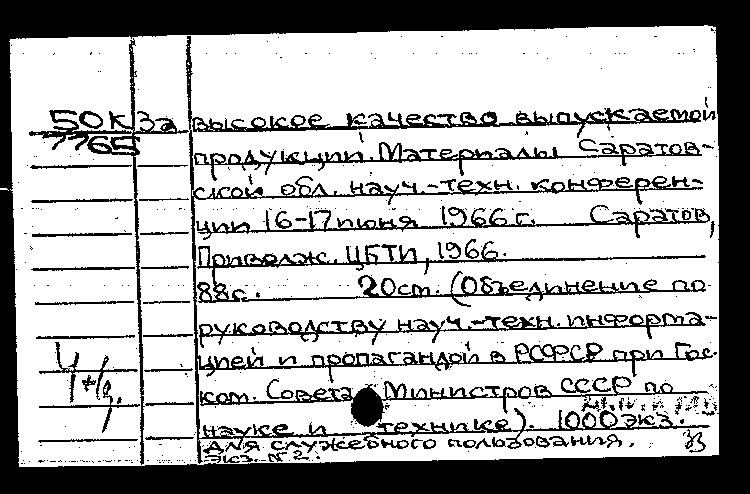 50К За высокое качество выпускаемой
7765
продукции. Материалы Саратов-
ской обл. науч.-техн. конферен-
ции 16-17 июня 1966 г. Саратов,
Приволж. ЦБТИ, 1966.
88 с. 20 см. (Объединение по
руководству науч.-техн. информа-
цией и пропагандой в РСФСР при Гос.
ком. Совета Министров СССР по
науке и технике). 1000 экз.
Для служебного пользования.
Экз. № 2.
33